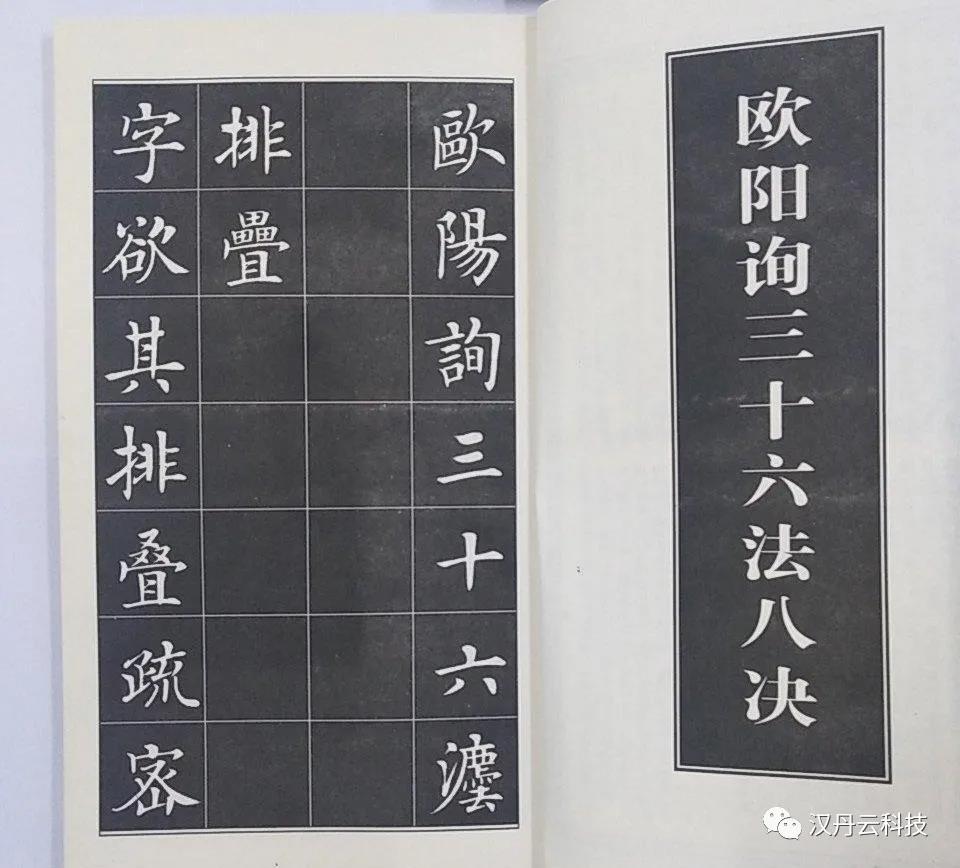 欧阳询三十六法八决
歐陽詢三十六灋
排疊
字欲其排叠疏密
汉丹云科技